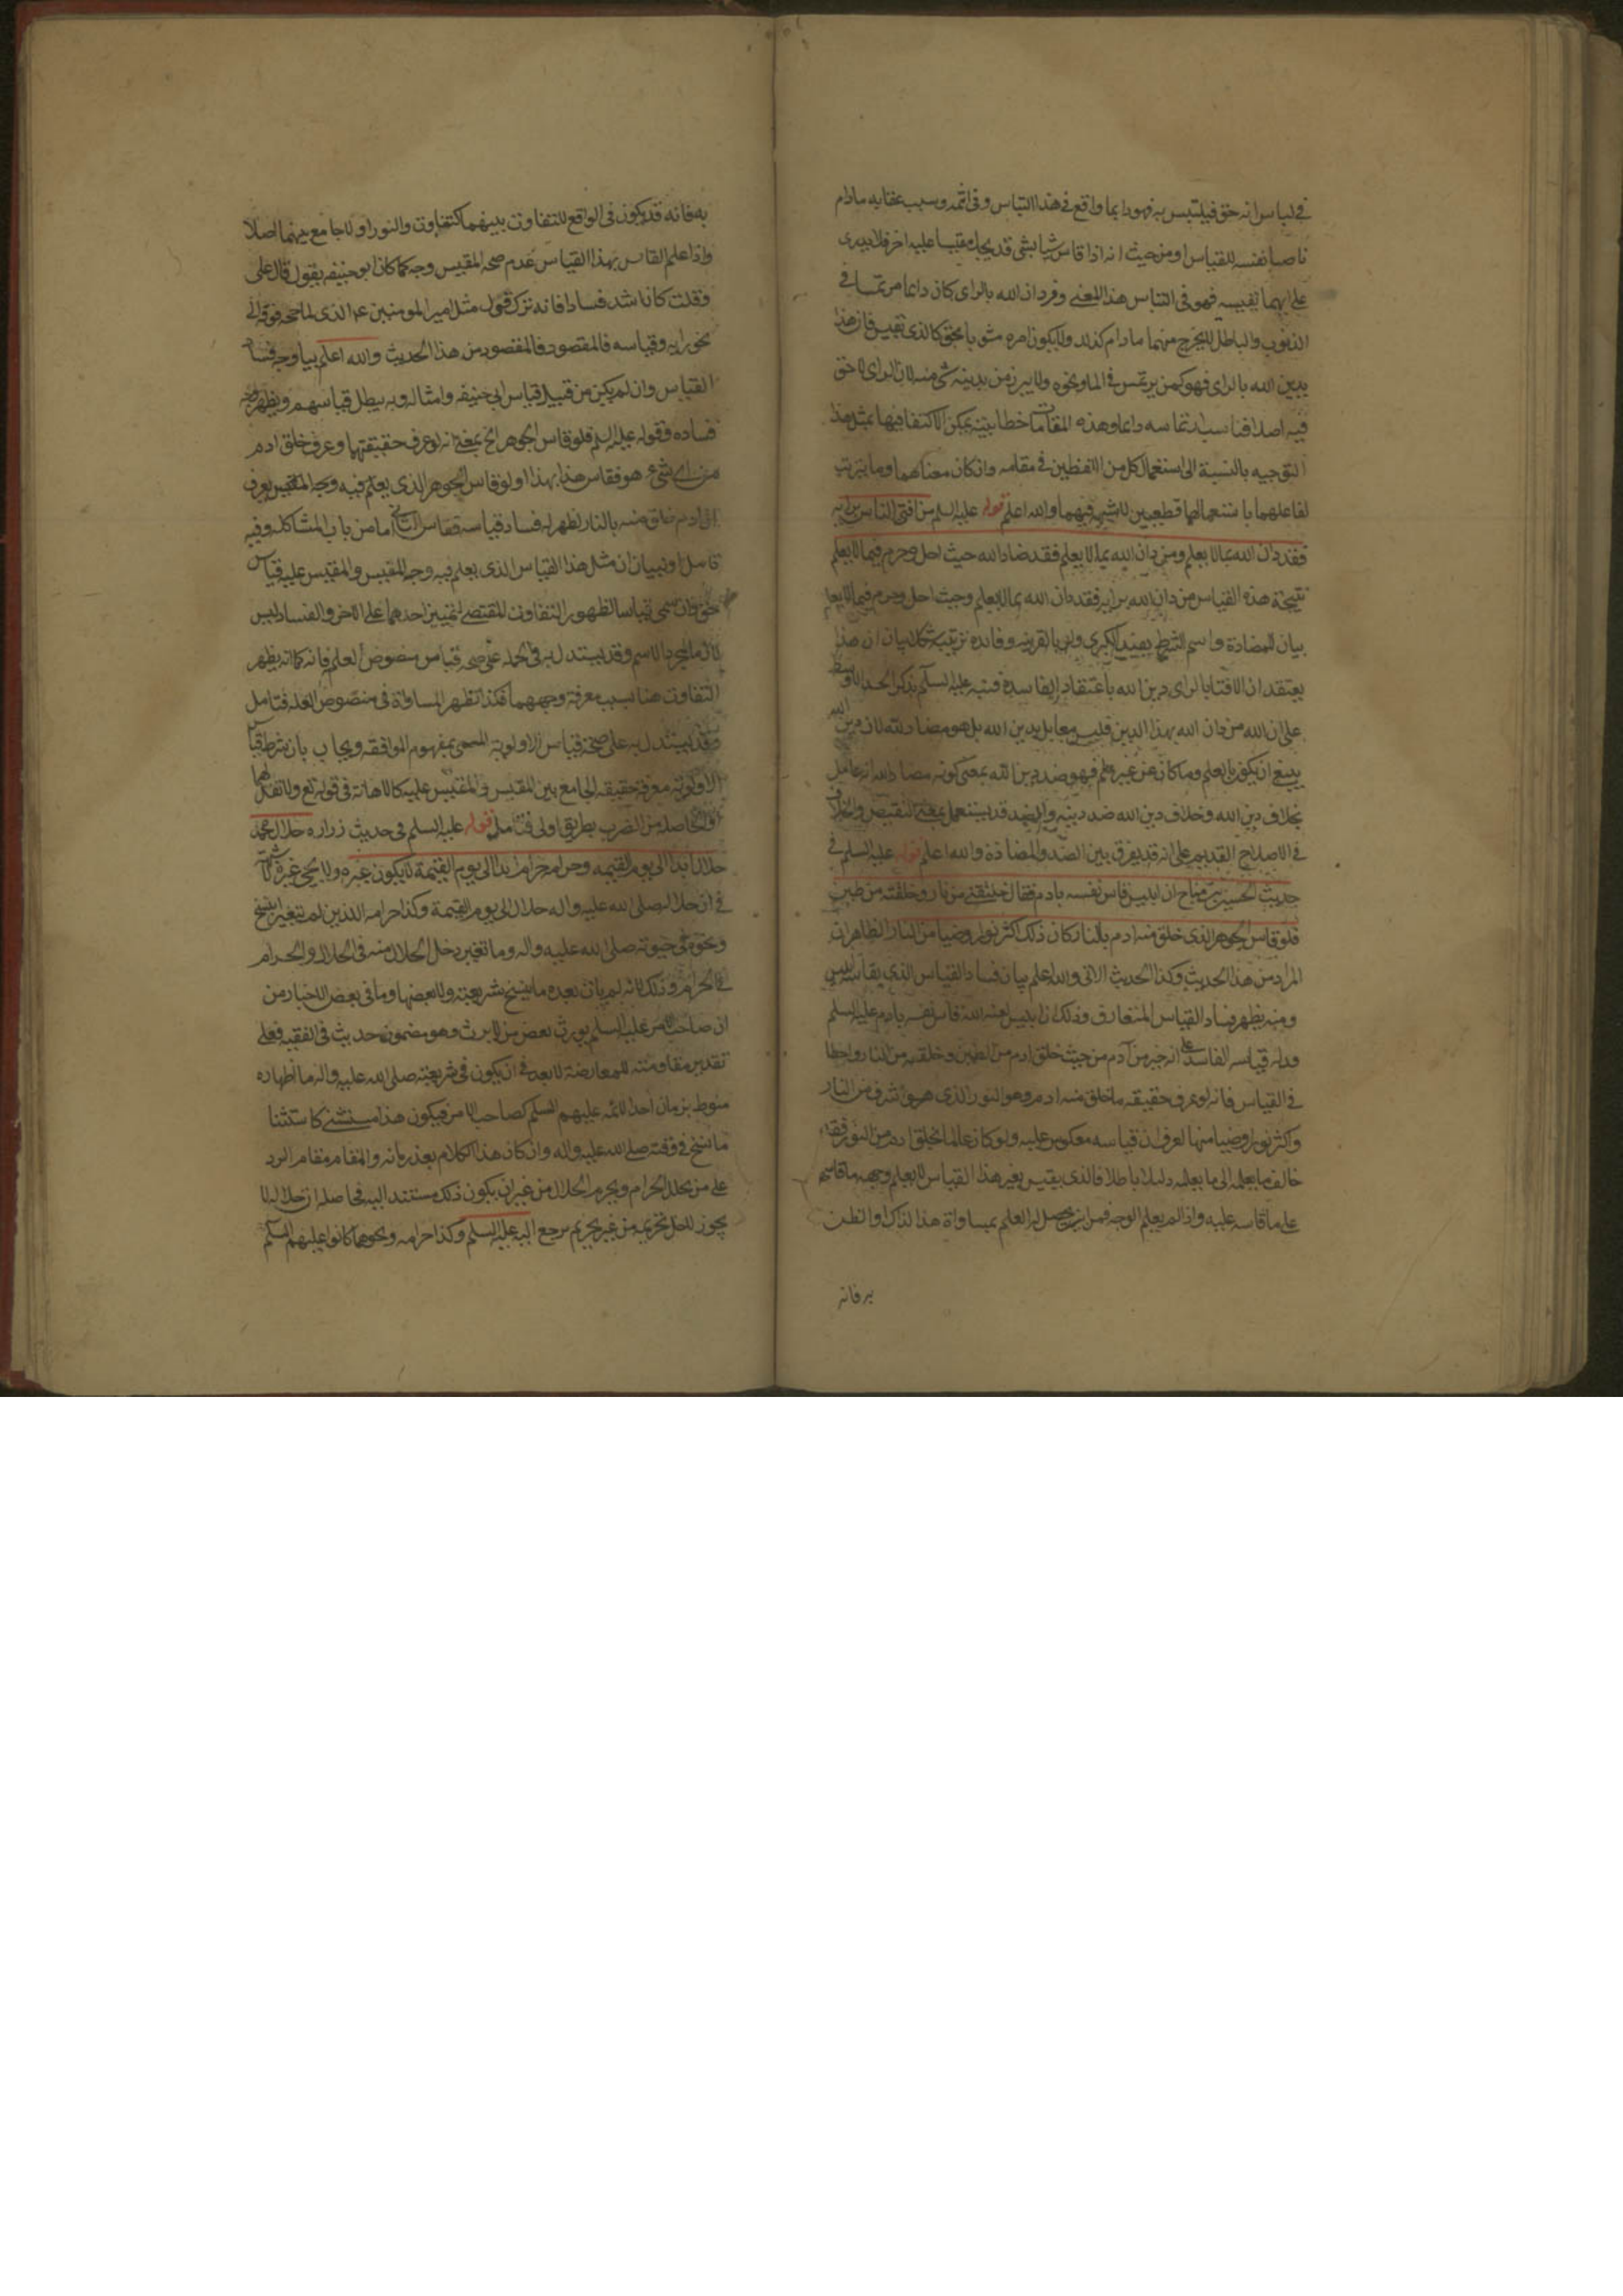 في لباس انه حق فيلتبس به فهو دايما واقع في هذا التباس وفي اثمه وسبب عقابه مادام
ناصبا نفسه للقياس او من حيث انه اذا قاس شيا بشي قد يجد مقيسا عليه اخر فلا يدرى
على ايهما يقيسه فهو في التباس هذا المعنى وفردان الله بالراى كان دايما مرتمسا في
الذنوب والباطل لا يخرج منهما مادام كذلك ولا يكون امره مشوبا بحق كالذى تقيس فان هذا
يدين الله بالراى فهو كمن يرتمس في الما ونحوه ولا يبرز من بدنه شى منه لان الراى لا حق
فيه اصلا فناسب ارتماسه دايما وهذه المقامات خطابية يمكن الاكتفا فيها بمثل هذا
التوجيه بالنسبة الى استعمال كل من اللفظين في مقامه وان كان معناهما وما يترتب
لفاعلهما باستعمالهما قطعيين لا شبهة فيهما والله اعلم قوله عليه السلم من افتى الناس برايه
فقد دان الله بما لا يعلم ومن دان الله بما لا يعلم فقد ضاد الله حيث احل وحرم فيما لا يعلم
نتيجة هذه القياس من دان الله برايه فقد دان الله بما لا يعلم وحيث احل وحرم فيما لا يعلم
بيان للمضادة واسم الشرط يفيد الكبرى ولو بالقرينه وفائدة ترتيبه بيان ان هذا
يعتقد ان الافتا بالراى دين الله باعتقاد الفاسد فنبه عليه السلم بذكر الحد الاوسط
على ان الله من دان الله بهذا الدين فليس معامل بدين الله بل هو مضاد لله لان دين الله
ينبغي ان يكون بالعلم وما كان عن غير علم فهو ضد دين الله بمعنى كونه مضادا لله انه عامل
بخلاف دين الله وخلاف دين الله ضد دينه والضد قد يستعمل بمعنى النقيض والخلاف
في الاصطلاح القديم على انه قد يفرق بين الضد والمضادة والله اعلم قوله عليه السلم في
حديث الحسين بن مياح ان ابليس قاس نفسه بادم فقال خلقتني من نار وخلقته من طين
فلو قاس الجوهر الذى خلق منه ادم بالنار كان ذلك اكثر نورا وضيا من النار الظاهر ان
المراد من هذا الحديث وكذا الحديث الاتى والله اعلم بيان فساد القياس الذي يقاسه ابليس
ومنه يظهر فساد القياس المتعارف وذلك ان ابليس لعنه الله قاس نفسه بادم عليه السلم
ودله قياسه الفاسد على انه خير من آدم من حيث خلق ادم من الطين وخلقه من النار واخطا
في القياس فانه لو عرف حقيقه ما خلق منه ادم وهو النور الذى هو اشرف من النار
واكثر نورا وضيا منها لعرف ان قياسه معكوس عليه ولو كان عالما بخلق ادم من النور فقد
خالف ما يعلمه الى ما يعلمه دليلا باطلا فالذى يقيس بغير هذا القياس لا يعلم وجه ما قاسه
على ما قاسه عليه واذا لم يعلم الوجه فمن اين يحصل له العلم بمساواة هذا لذاك او الظن
به فانه
به فانه قد يكون في الواقع للتفاوت بينهما كتفاوت والنور او لا جامع بينهما اصلا
واذا علم القاس بهذا القياس عدم صحه المقيس وجه كما كان ابو حنيفه يقول قال على
وقلت كان اشد فسادا فانه ترك قول مثل امير المومنين ع الذى
نحو رايه وقياسه فالمقصود فالمقصود من هذا الحديث والله اعلم بيان وجه فساد
القياس وان لم يكن من قبيل قياس ابي حنيفه وامثاله وبه يبطل قياسهم ويظهر وجه
فساده وقوله عليه السلم فلو قاس الجوهر الخ بمعنى انه لو عرف حقيقتهما وعرف خلق ادم
من اى شيء هو فقاس هذا بهذا او لو قاس الجوهر الذى يعلم فيه وجه المقيس يعرف
ان ادم خلق منه بالنار لظهر له فساد قياسه فقاس الثاني اما من باب المشاكله وفيه
تامل او لبيان ان مثل هذا القياس الذى يعلم فيه وجه المقيس والمقيس عليه قياس
حق وان سمى قياسا لظهور التفاوت المقتضى لتمييز احدهما على الاخر والفساد ليس
لازما لمجرد الاسم وقد يستدل به في الجملة على صحه قياس منصوص العلة فانه كما انه يظهر
التفاوت هنا بسبب معرفة وجههما فكذا تظهر المساواة في منصوص العلة فتامل
وقد يستدل به على صحة قياس الاولوية المسمى بمفهوم الموافقه ويجاب بان شرط قياس
الاولوية معرفة حقيقه الجامع بين المقيس والمقيس عليه كالاهانة في قوله تع ولا تقل لهما
اف الحاصله من الضرب بطريق اولى فتامل قوله عليه السلم في حديث زراره حلال محمد
حلال ابدا الى يوم القيمه وحرامه حرام ابدا الى يوم القيمة لا يكون غيره ولا يجي غيره لا شبهة
في ان حلاله صلى الله عليه واله حلال الى يوم القيمة وكذا حرامه اللذين لم تتغير بنسخ
ونحوه في حيوته صلى الله عليه واله وما تغير دخل الحلال منه في الحلال والحرام
في الحرام وذلك لانه لم يات بعده ما ينسخ شريعته ولا بعضها وما في بعض الاخبار من
ان صاحب الامر عليه السلم يورث بعض من لا يرث وهو مضمون حديث في الفقيه فعلى
تقدير مقاومته للمعارضة لا بعد في ان يكون في شريعته صلى الله عليه واله ما اظهاره
منوط بزمان احد الائمه عليهم السلم كصاحب الامر فيكون هذا مستثنى كاستثنا
ما نسخ في وقته صلى الله عليه واله وان كان هذا الكلام بعد زمانه والمقام مقام الرد
على من يحلل الحرام ويحرم الحلال من غير ان يكون ذلك مستندا اليه فحاصله ان حلاله لا
يجوز لاحد تحريمه من غير تحريم مرجع اليه عليه السلم وكذا حرامه ونحوهما كانوا عليهم السلم